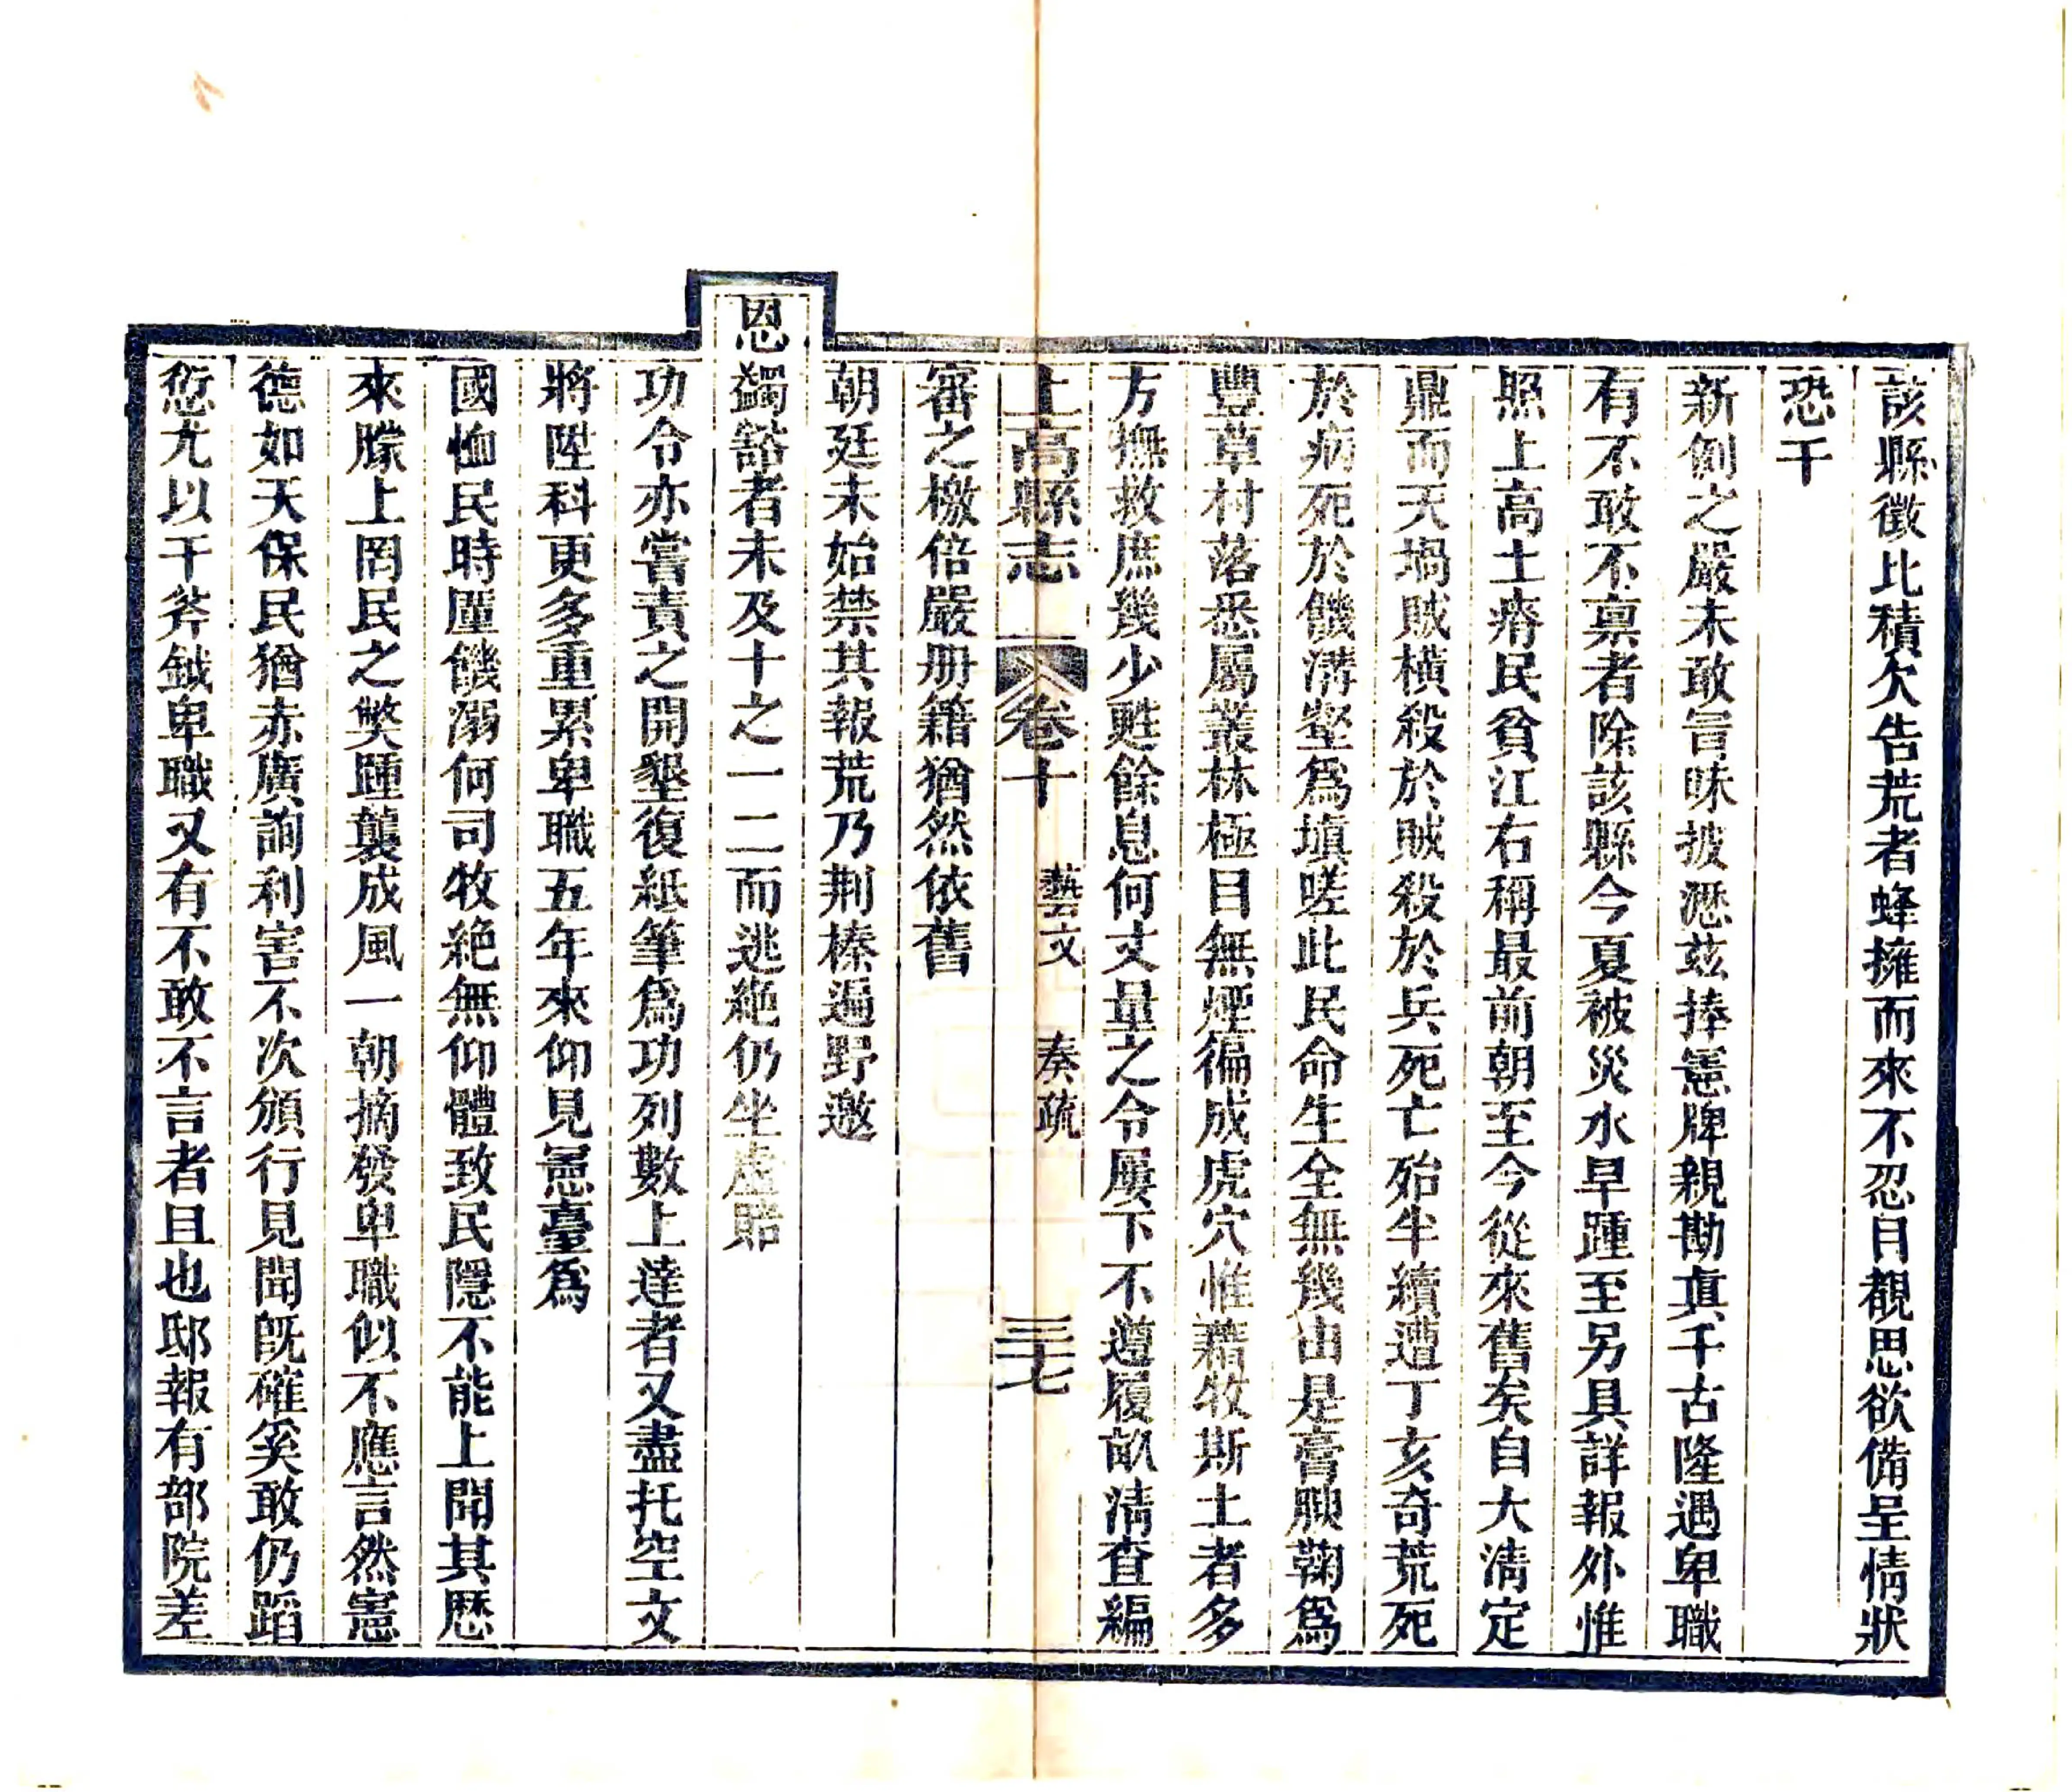 該縣徵比積欠告荒者蜂擁而來不忍目覩思欲備呈情狀
恐干
新例之嚴未敢冒昧披瀝玆捧憲牌親勘真千古隆遇卑職
有不敢不禀者除該縣今夏被災水旱踵至另具詳報外惟
照上高土瘠民貧江右稱最前朝至今從來舊矣自大淸定
鼎而天塌賊橫殺於賊殺於兵死亡殆半續遭丁亥奇荒死
於病死於饑溝壑爲塡嗟此民命生全無幾由是膏腴鞠爲
豐草村落悉屬叢林極目無煙徧成虎穴惟藉牧斯土者多
方撫救庶幾少甦餘息何丈量之令屢下不遵履畝淸查編
審之檄倍嚴册籍猶然依舊
上高縣志 卷十 藝文 奏疏 三七
朝廷未始禁其報荒乃荆榛遍野邀
恩蠲豁者未及十之一二而逃絶仍坐虛賠
功令亦嘗責之開墾復紙筆爲功列數上達者又盡托空文
將陞科更多重累卑職五年來仰見憲臺爲
國恤民時廑饑溺何司牧絶無仰體致民隱不能上聞其歷
來朦上罔民之獘踵襲成風一朝摘發卑職似不應言然憲
德如天保民猶赤廣詢利害不次頒行見聞旣確奚敢仍蹈
愆尤以干斧鉞卑職又有不敢不言者且也邸報有部院差